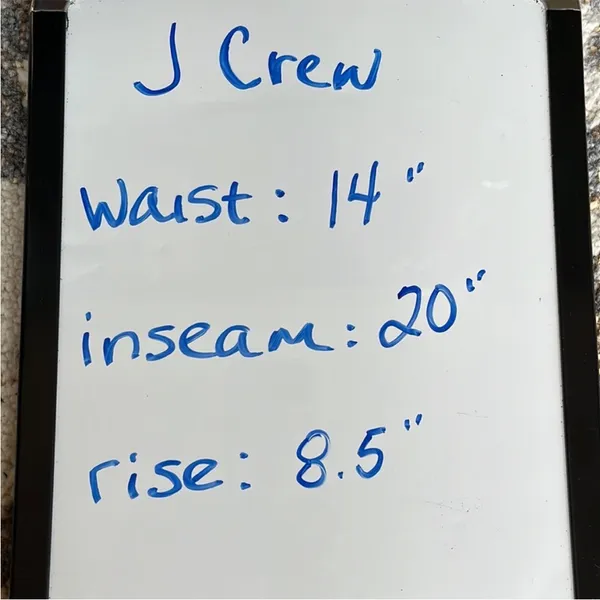 J Crew
Waist: 14"
inseam: 20"
rise: 8.5"